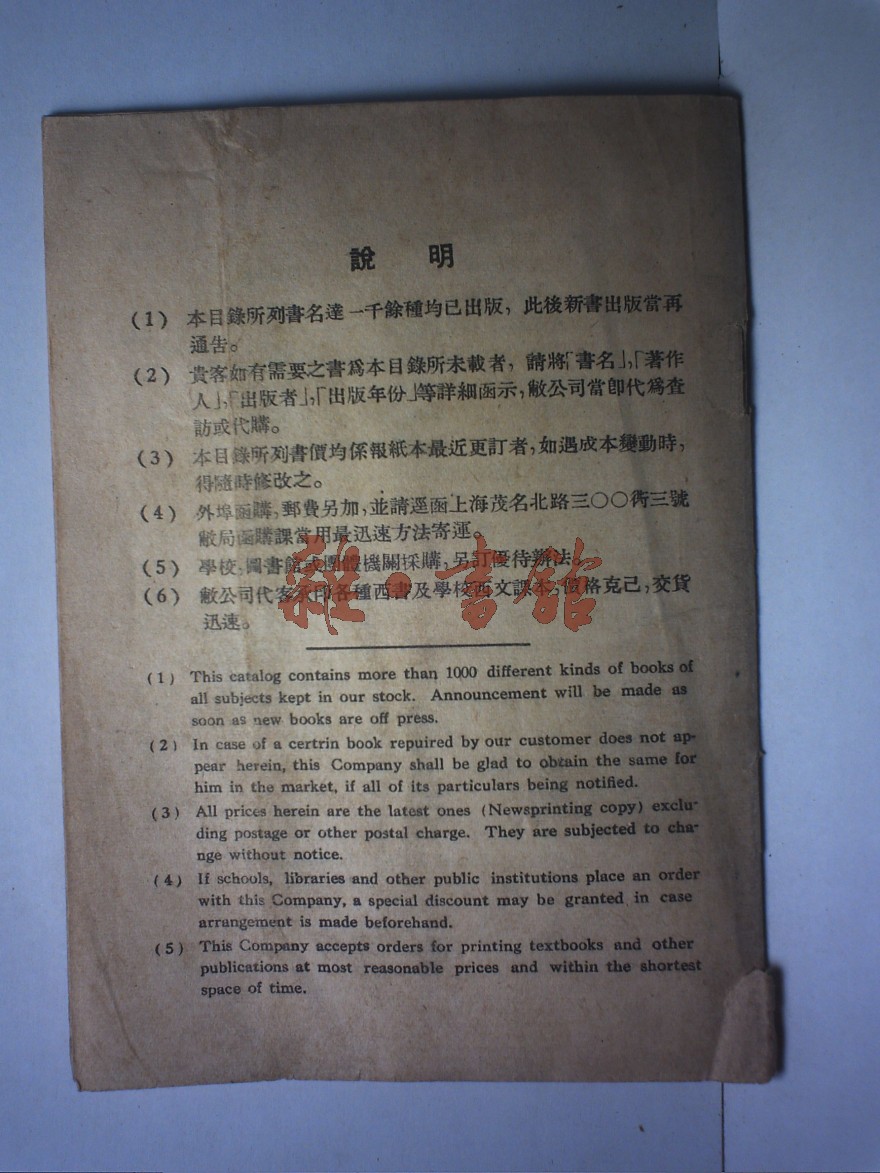 說 明
(1) 本目錄所列書名達一千餘種均已出版，此後新書出版當再
通告。
(2) 貴客如有需要之書爲本目錄所未載者，請將「書名」，「著作
人」，「出版者」，「出版年份」等詳細函示，敝公司當卽代爲查
訪或代購。
(3) 本目錄所列書價均係報紙本最近更訂者，如遇成本變動時，
得隨時修改之。
(4) 外埠函購，郵費另加，並請逕函上海茂名北路三〇〇衖三號
敝局函購課當用最迅速方法寄運。
(5) 學校，圖書館或團體機關採購，另訂優待辦法。
(6) 敝公司代客承印各種西書及學校西文課本，價格克己，交貨
迅速。
雜·書館
(1) This catalog contains more than 1000 different kinds of books of
all subjects kept in our stock. Announcement will be made as
soon as new books are off press.
(2) In case of a certrin book repuired by our customer does not ap-
pear herein, this Company shall be glad to obtain the same for
him in the market, if all of its particulars being notified.
(3) All prices herein are the latest ones (Newsprinting copy) exclu-
ding postage or other postal charge. They are subjected to cha-
nge without notice.
(4) If schools, libraries and other public institutions place an order
with this Company, a special discount may be granted in case
arrangement is made beforehand.
(5) This Company accepts orders for printing textbooks and other
publications at most reasonable prices and within the shortest
space of time.